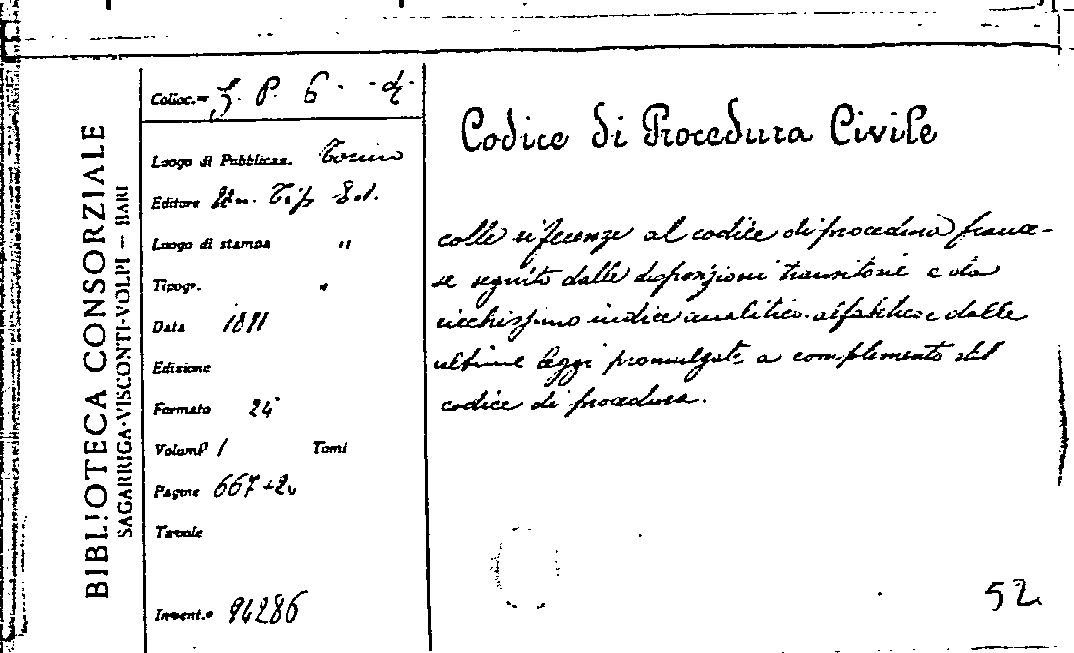 BIBLIOTECA CONSORZIALE
SAGARRIGA-VISCONTI-VOLPI — BARI
Colloc.= P. 6.
Luogo di Pubblicaz. Torino
Editore Un. Tip. Ed.
Luogo di stampa "
Tipogr. "
Data
Edizione
Formato 24°
Volumi 1 Tomi
Pagine 667+
Tavole
Invent.° 94286
Codice di Procedura Civile
colle riferenze al codice di procedura france-
se seguito dalle disposizioni transitorie e da
ricchissimo indice analitico-alfabetico e dalle
ultime leggi promulgate a complemento del
codice di procedura.
52